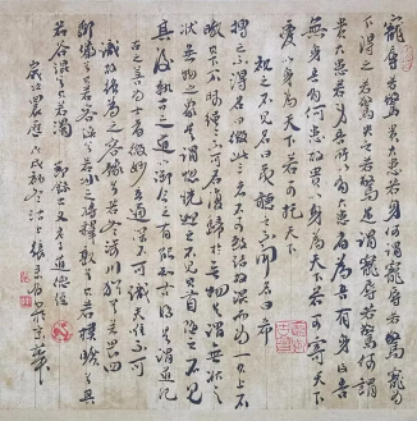 寵辱若驚貴大患若身何謂寵辱若驚寵為
下得之若驚失之若驚是謂寵辱若驚何謂
貴大患若身吾所以有大患者為吾有身及吾
無身吾有何患故貴以身為天下若可寄天下
愛以身為天下若可托天下
視之不見名曰夷聽之不聞名曰希
搏之不得名曰微此三者不可致詰故混而為一其上不
皦其下不昧繩繩不可名復歸於無物是謂無狀之
狀無物之象是謂惚恍迎之不見其首隨之不見
其後執古之道以御今之有能知古始是謂道紀
古之善為士者微妙玄通深不可識夫唯不可
識故強為之容豫兮若冬涉川猶兮若畏四
鄰儼兮其若客渙兮若冰之將釋敦兮其若樸曠兮其
若谷混兮其若濁 節錄 老子道德經
歲次 戊戌初冬沽上張